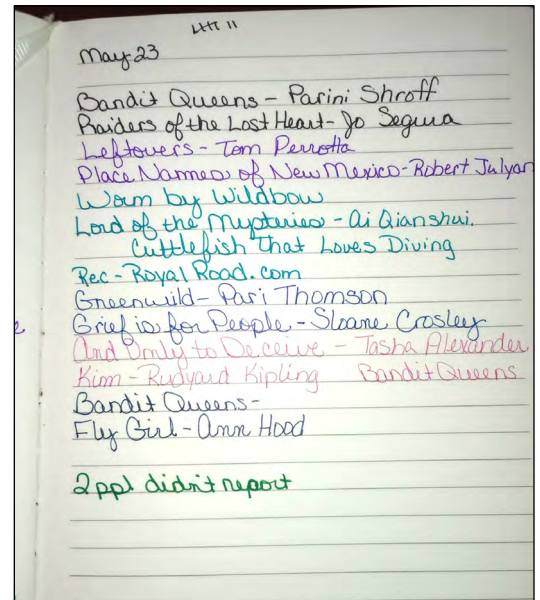 11
May 23
Bandit Queens - Parini Shroff
Raiders of the Lost Heart - Jo Segura
Leftovers - Tom Perrotta
Place Names of New Mexico - Robert Julyan
Worm by Wildbow
Lord of the Mysteries - Ai Qianshui.
Cuttlefish That Loves Diving
Rec - Royal Road.com
Greenwild - Pari Thomson
Grief is for People - Sloane Crosley
And Only to Deceive - Tasha Alexander
Kim - Rudyard Kipling Bandit Queens
Bandit Queens -
Fly Girl - Ann Hood
2 ppl didn't report